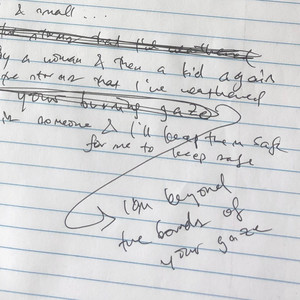 & small...
the storms that i've weathered
by a woman & then a kid again
the storms that i've weathered
your burning gaze
someone & i'll keep them safe
for me to keep safe
i am beyond
the bounds of
your gaze